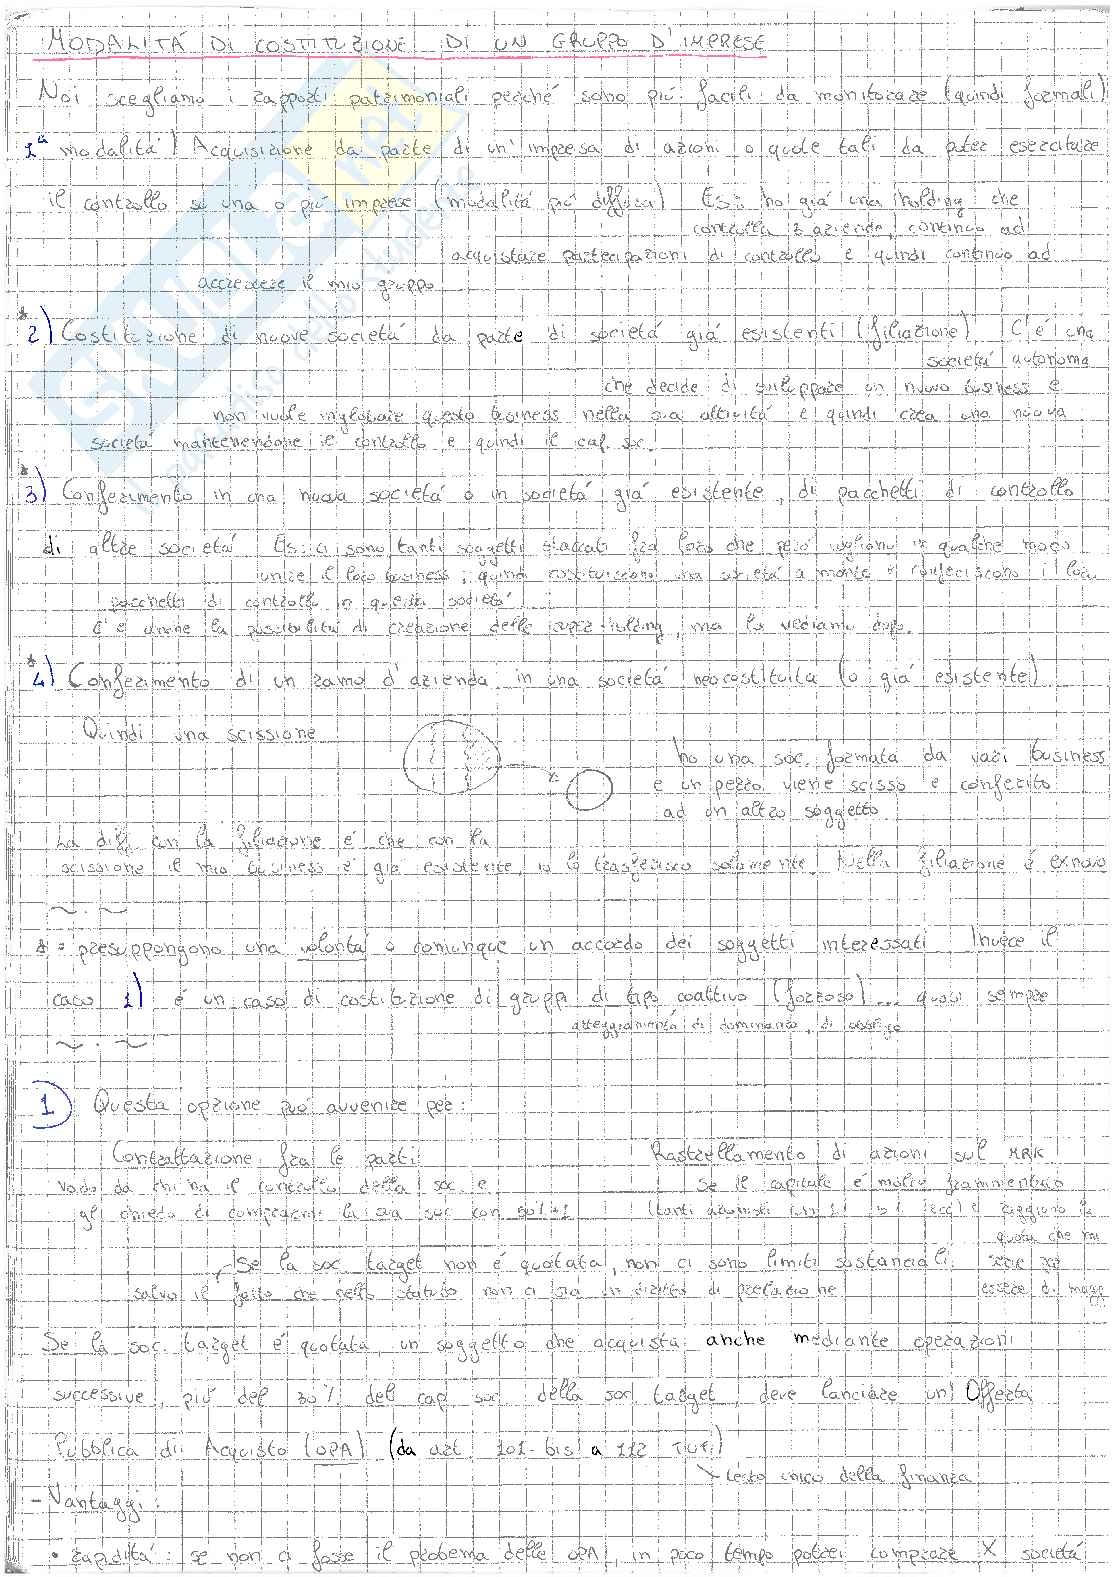 MODALITÁ DI COSTITUZIONE DI UN GRUPPO D'IMPRESE
Noi scegliamo i rapporti patrimoniali perché sono piú facili da monitorare (quindi formali)
1ª modalitá) Acquisizione da parte di un'impresa di azioni o quote tali da poter esercitare
il controllo su una o piú imprese (modalitá piú diffusa) Es: ho giá una holding che
controlla 2 aziende, continuo ad
acquistare partecipazioni di controllo e quindi continuo ad
accrescere il mio gruppo
* 2) Costituzione di nuove societá da parte di societá giá esistenti (filiazione) C'é una
societá autonoma
che decide di sviluppare un nuovo business e
non vuole inglobare questo business nella sua attivitá e quindi crea una nuova
societá mantenendone il controllo e quindi il cap. soc.
* 3) Conferimento in una nuova societá o in societá giá esistente, di pacchetti di controllo
di altre societá Es: ci sono tanti soggetti staccati fra loro che peró vogliono in qualche modo
unire il loro business, quindi costituiscono una societá a monte e conferiscono i loro
pacchetti di controllo in questa societá
C'é anche la possibilitá di creazione delle super-holding, ma lo vediamo dopo.
* 4) Conferimento di un ramo d'azienda in una societá neocostituita (o giá esistente)
Quindi una scissione
ho una soc. formata da vari business
e un pezzo viene scisso e conferito
ad un altro soggetto
La diff. con la filiazione é che con la
scissione il mio business é giá esistente, io lo trasferisco solamente. Nella filiazione é exnovo
* = presuppongono una volontá o comunque un accordo dei soggetti interessati Invece il
caso 1) é un caso di costituzione di gruppi di tipo coattivo (forzoso)... quasi sempre
atteggiamento di dominanza, di
1) Questa opzione puó avvenire per:
Contrattazione fra le parti
Rastrellamento di azioni sul MRK
vado da chi ha il controllo della soc. e
gli chiedo di comprarmi la sua soc con 50%+1
Se il capitale é molto frammentato
(tanti azionisti
quota che mi
serve per
essere di magg
Se la soc. target non é quotata, non ci sono limiti sostanziali,
salvo il fatto che nello statuto non ci sia un diritto di prelazione
Se la soc. target é quotata, un soggetto che acquista anche mediante operazioni
successive, piú del 30% del cap soc. della soc target, deve lanciare un'Offerta
Pubblica di Acquisto (OPA) (da art. 101-bis a 112 TUF)
testo unico della finanza
- Vantaggi:
• rapiditá: se non ci fosse il problema delle OPA, in poco tempo potrei comprare X societá
SKUOLA.net
il paradiso dello studente